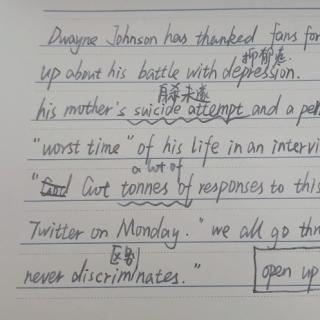 Dwayne Johnson has thanked fans for
抑郁症.
up about his battle with depression.
自杀未遂
his mother's suicide attempt and a per
"worst time" of his life in an intervi
a lot of
" Got tonnes of responses to this
Twitter on Monday. "we all go thr
区别
never discriminates."
open up